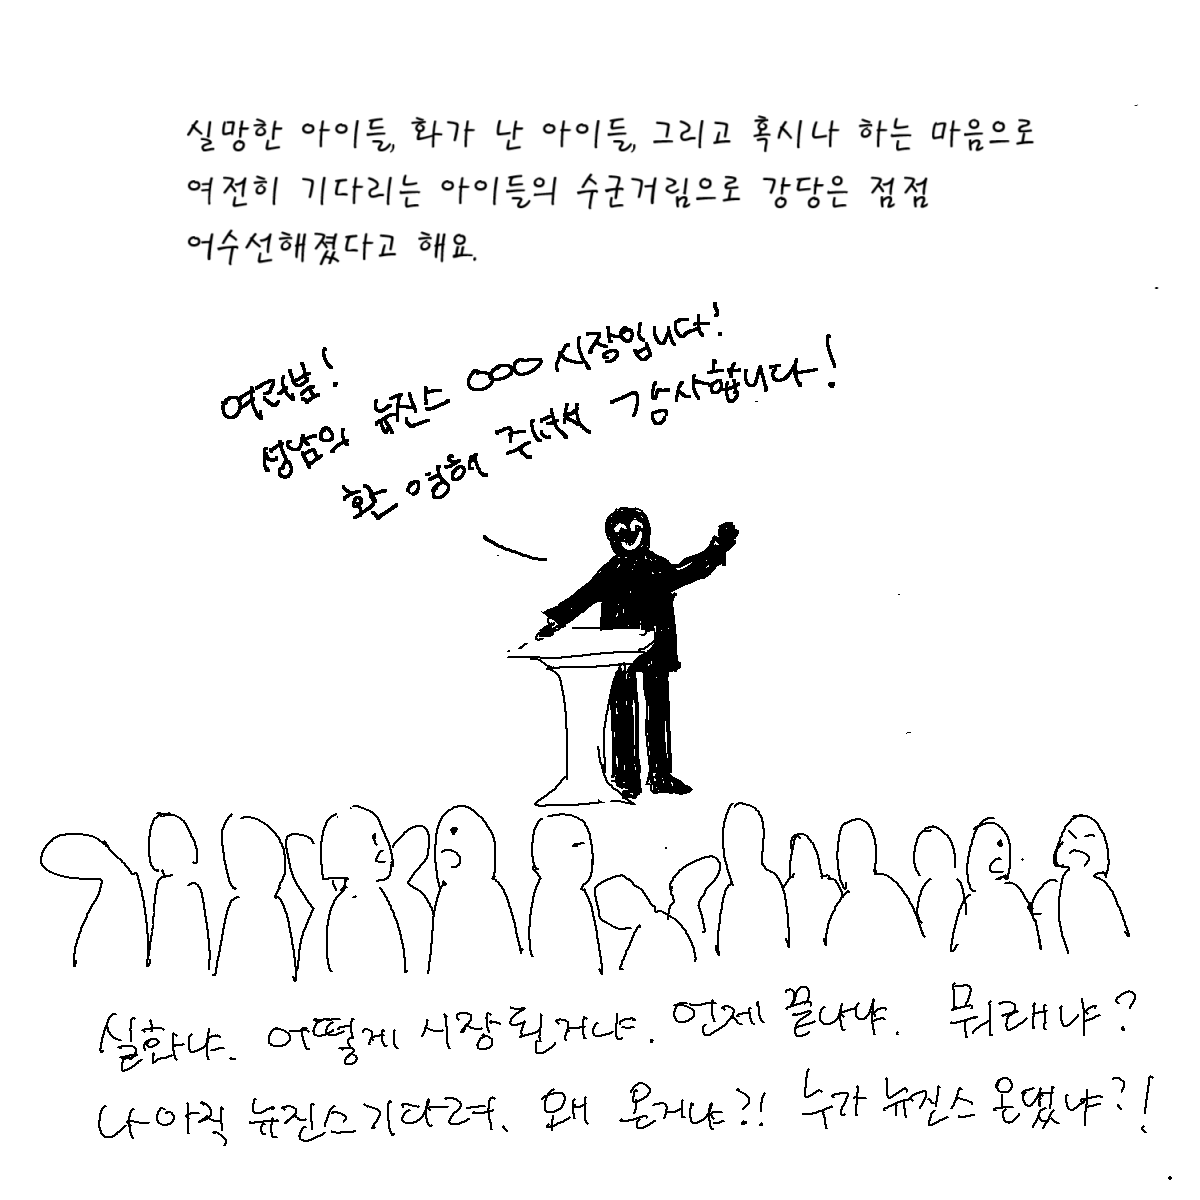 실망한 아이들, 화가 난 아이들, 그리고 혹시나 하는 마음으로
여전히 기다리는 아이들의 수군거림으로 강당은 점점
어수선해졌다고 해요.
여러분!
성남의 뉴진스 ○○○ 시장입니다!
환영해 주셔서 감사합니다!
실화냐. 어떻게 시장된거냐. 언제 끝나냐. 뭐래냐?
나 아직 뉴진스 기다려. 왜 온거냐?! 누가 뉴진스 온댔냐?!